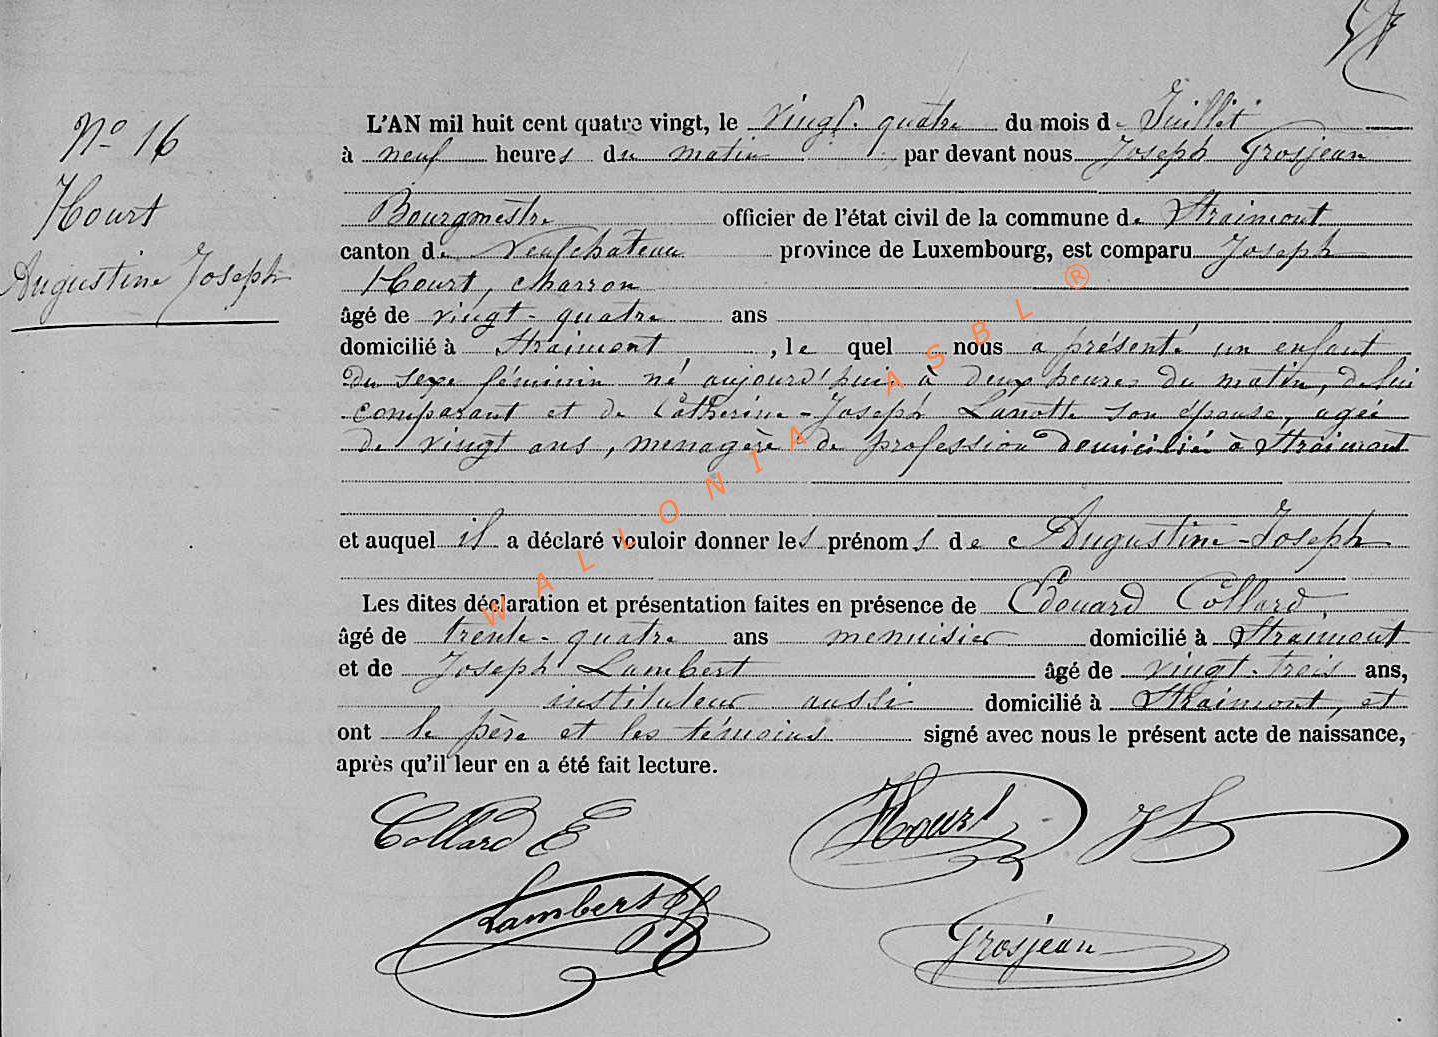 N° 16
Hourt
Augustine Joseph
L'AN mil huit cent quatre vingt, le vingt-quatre du mois de Juillet
à neuf heures du matin par devant nous Joseph Grosjean
Bourgmestre officier de l'état civil de la commune de Straimont
canton de Neufchateau province de Luxembourg, est comparu Joseph
Hourt, charron
âgé de vingt-quatre ans
domicilié à Straimont, le quel nous a présenté un enfant
du sexe féminin né aujourd'hui à deux heures du matin, de lui
comparant et de Catherine-Joseph Lanotte son épouse, agée
de vingt ans, menagère de profession domiciliée à Straimont
et auquel il a déclaré vouloir donner les prénoms de Augustine-Joseph
Les dites déclaration et présentation faites en présence de Edouard Collard,
âgé de trente-quatre ans menuisier domicilié à Straimont
et de Joseph Lambert âgé de vingt-trois ans,
instituteur aussi domicilié à Straimont, et
ont le père et les témoins signé avec nous le présent acte de naissance,
après qu'il leur en a été fait lecture.
Collard E Hourt J
Lambert
Grosjean
WALLONIA ASBL ®